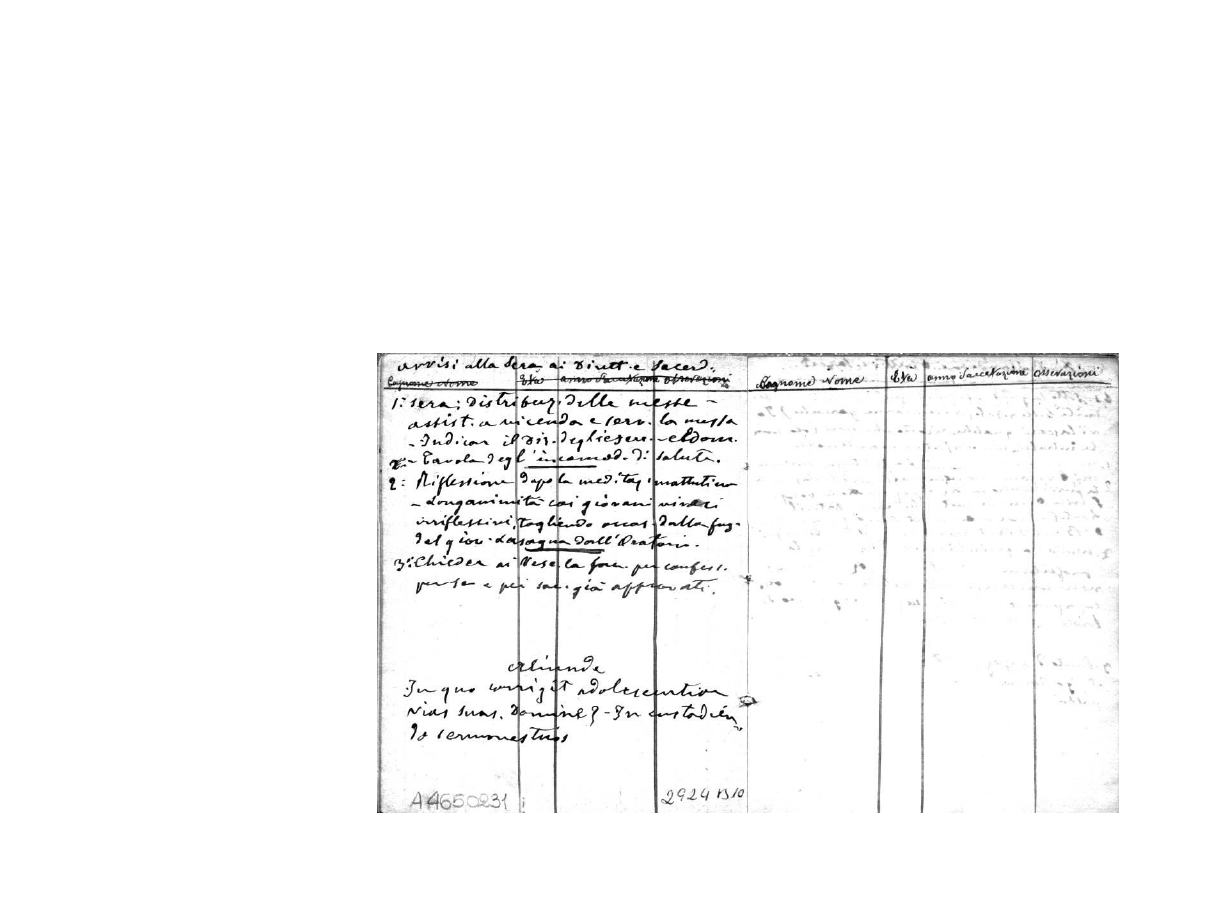 avvisi alla sera ai Dirett. e Sacerd.
Cognome Nome Età anno d'accettazione osservazioni
1: sera: distribuz. delle messe -
assist. a vicenda e serv. la messa
- Indicar il dir. degli eser. - el dom.
2. - Tavola degl'incomod. di salute.
2: Riflessione dopo la meditaz. mattutina
- Longanimità coi giovani vivaci
irriflessivi, togliendo occas. dalla fug.
del giov. Lasagna dall'Oratorio.
3: Chieder ai Vesc. la fac. per confess.
per se e pei sac. già approvati.
Aliunde
In quo corrigit adolescentior
vias suas, Domine? - In custodien
do sermones tuos
A4650231
2924 B10
Cognome Nome Età anno d'accettazione Osservazioni